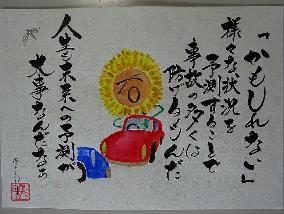 「かもしれない」
様々な状況を
予測することで
事故の多くは
防げるもんだ
人生も未来への予測が
大事なんだなぁ